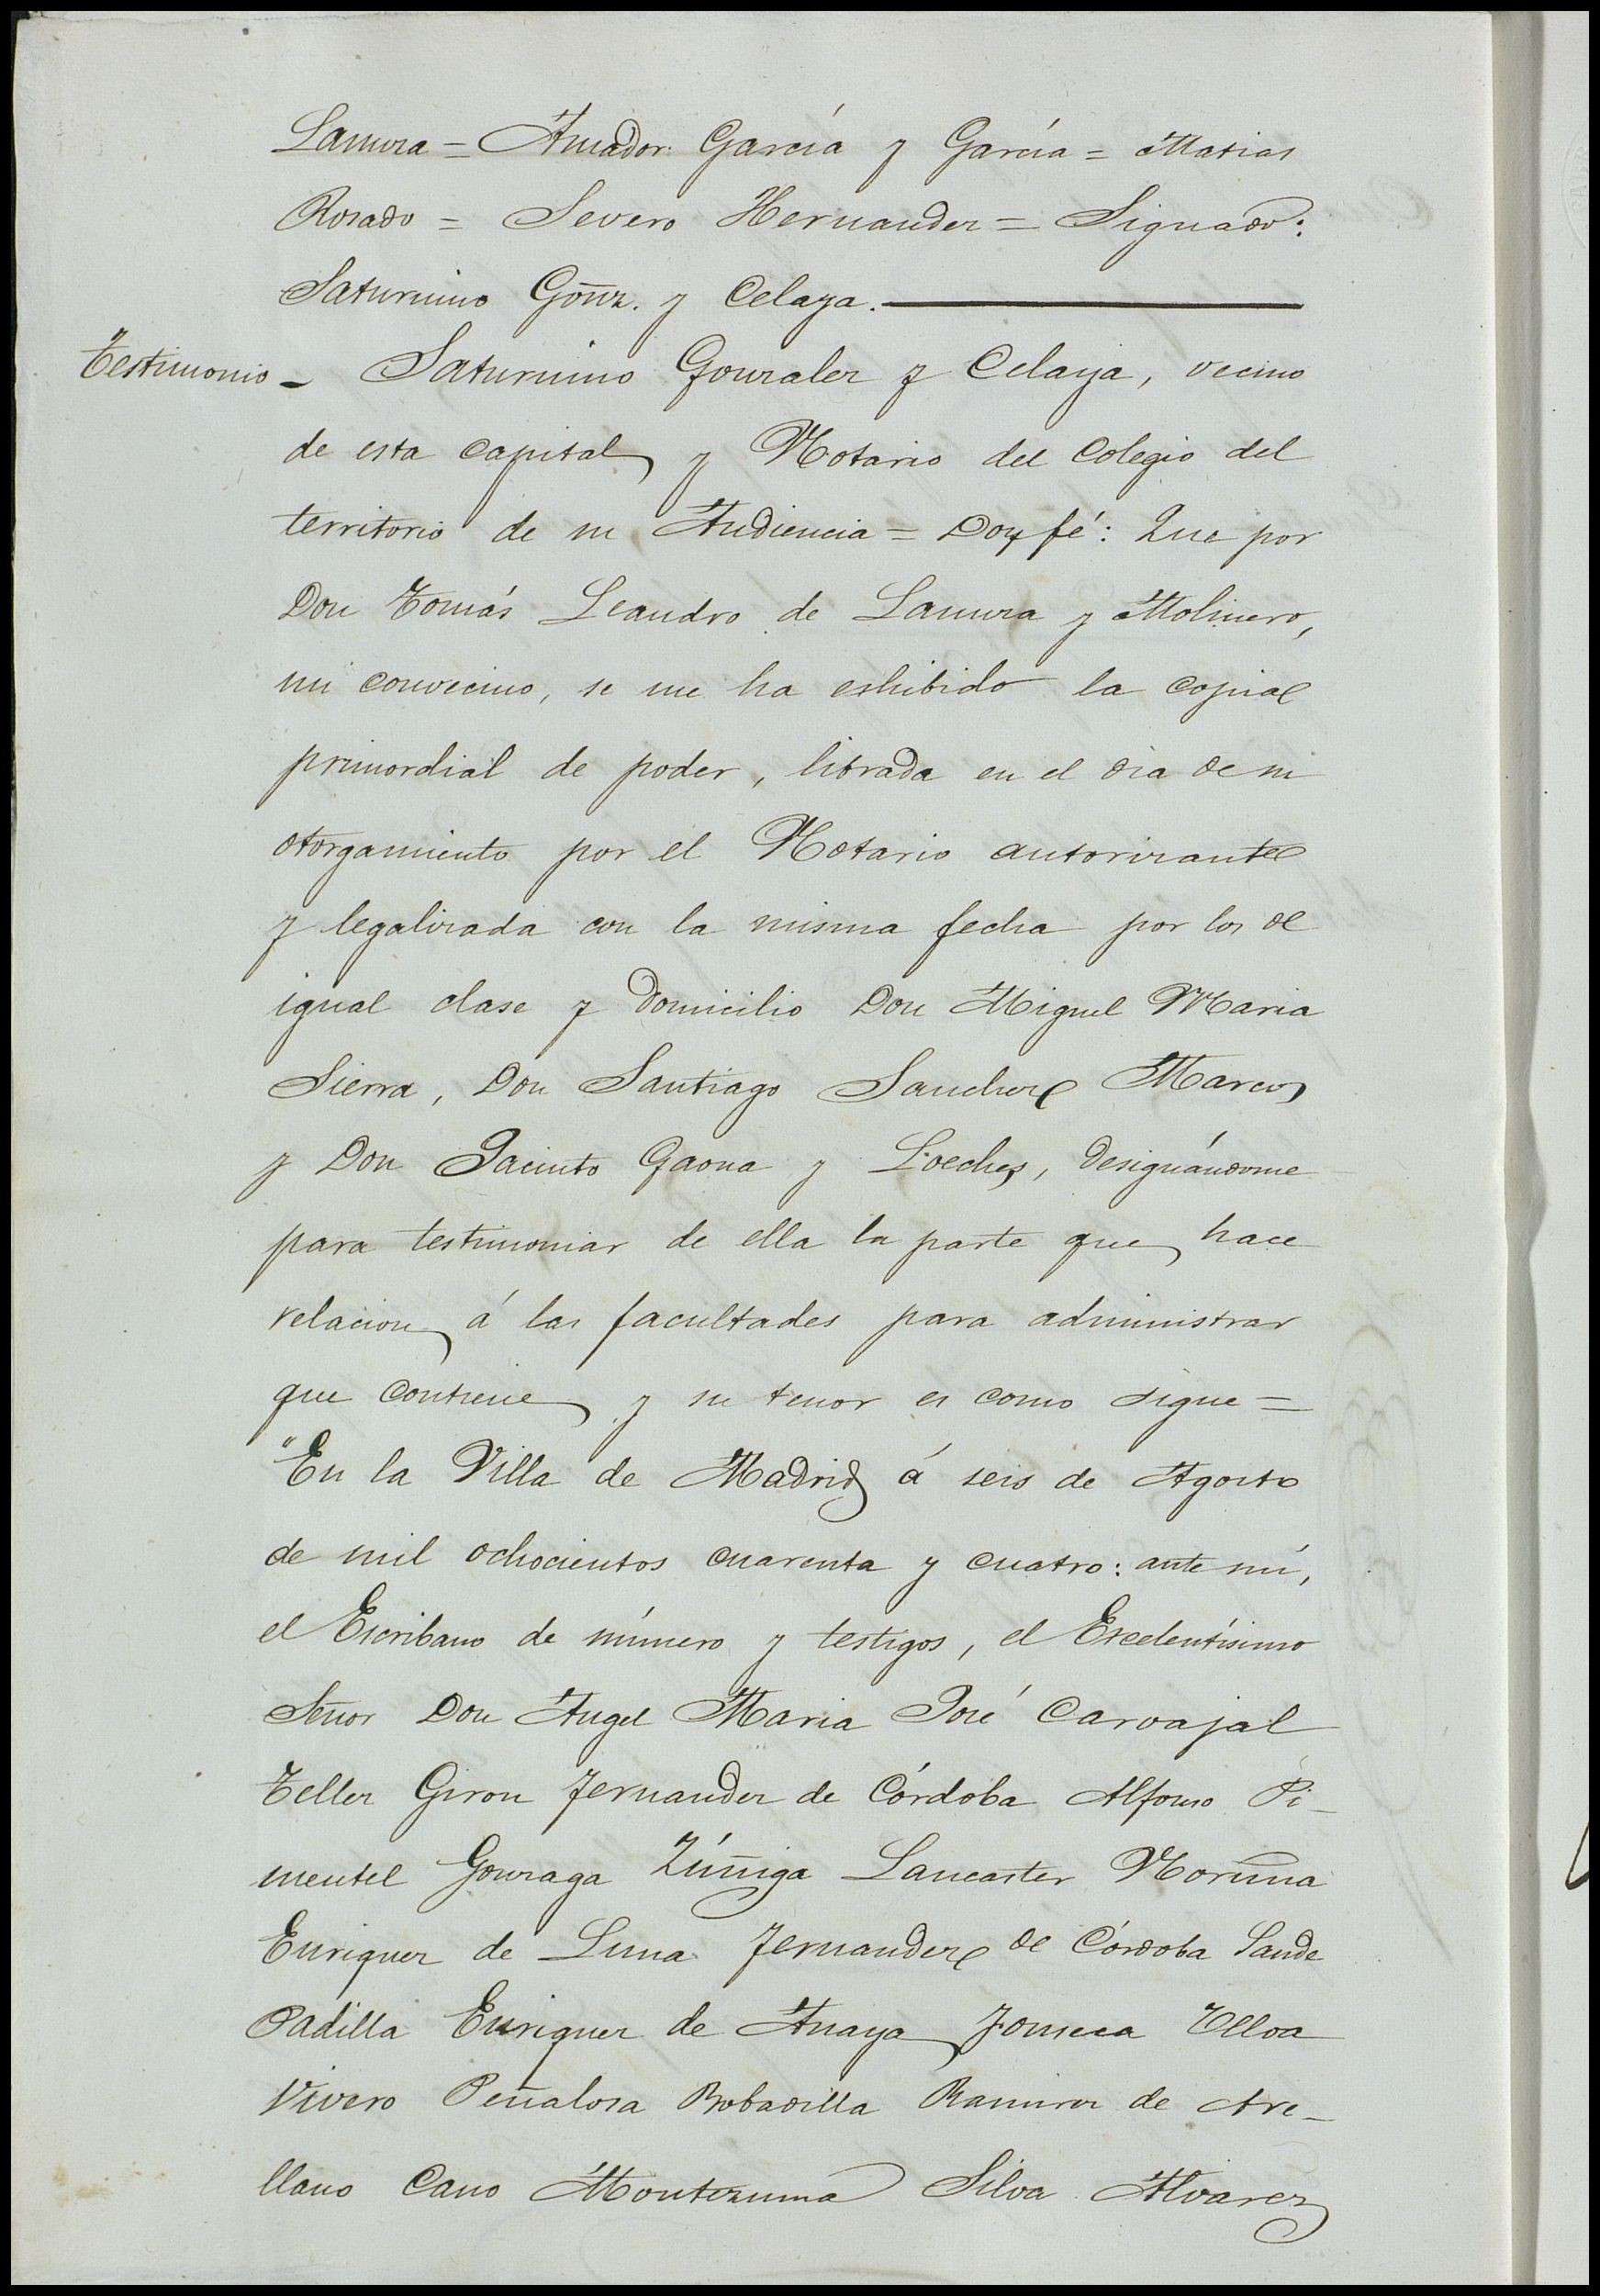 Lamura = Amador García y García = Matias
Rosado = Severo Hernandez = Signado:
Saturnino Gonz. y Celaya.
Testimonio - Saturnino Gonzalez y Celaya, vecino
de esta capital y Notario del Colegio del
territorio de su Audiencia = Doy fé: Que por
Don Tomás Leandro de Lamura y Molinero,
mi convecino, se me ha eshibido la copia
primordial de poder, librada en el dia de su
otorgamiento por el Notario autorizante
y legalizada con la misma fecha por los de
igual clase y domicilio Don Miguel Maria
Sierra, Don Santiago Sanchez Marcos
y Don Jacinto Gaona y Loeches, designándome
para testimoniar de ella la parte que hace
relacion á las facultades para administrar
que contiene y su tenor es como sigue =
"En la Villa de Madrid á seis de Agosto
de mil ochocientos cuarenta y cuatro: ante mí,
el Escribano de número y testigos, el Escelentísimo
Señor Don Angel Maria José Carvajal
Tellez Giron Fernandez de Córdoba Alfonso Pi-
mentel Gonzaga Zúñiga Lancaster Noroña
Enriquez de Luna Fernandez de Córdoba Sande
Padilla Enriquez de Anaya Fonseca Ulloa
Vivero Peñalosa Bobadilla Ramirez de Are-
llano Cano Montezuma Silva Alvarez